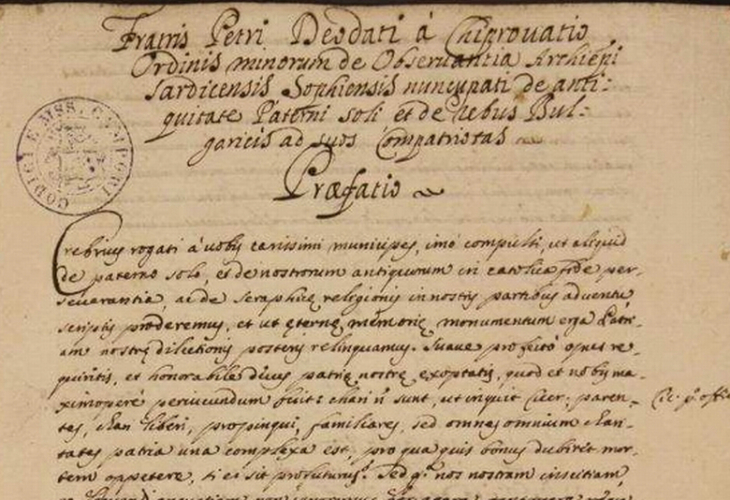 Fratris Petri Deodati á Chiprovatio
Ordinis minorum de Observantia Archiep̄i
Sardicensis Sophiensis nuncupati de anti:
quitate Paterni soli et de rebus Bul-
garicis ad suos Compatriotas
CODICI E MSS. CAMPORI
Præfatio
Crebrius rogati á vobis carissimi municipes, imó compulsi, ut aliquid
de paterno solo, et de nostrorum antiquorum in catolica fide per-
severantia, ac de seraphicę religionis in nostris partibus adventu
scriptis proderemus, et ut ęternę memorię monumentum erga Patri-
am nostrę dilectionis posteris relinquamus. Suave profectó opus re-
quiritis, et honorabile decus patrię nostrę exoptatis, quod et nobis ma-
ximoperé periucundum
sunt, ut inquit Cicer: paren-
tes, chari liberi, propinqui, familiares, sed omnes omnium chari-
tates patria una complexa est, pro qua quis bonus dubitet mor-
tem oppetere, si ei sit profuturus? Sed nos nostram inscitiam